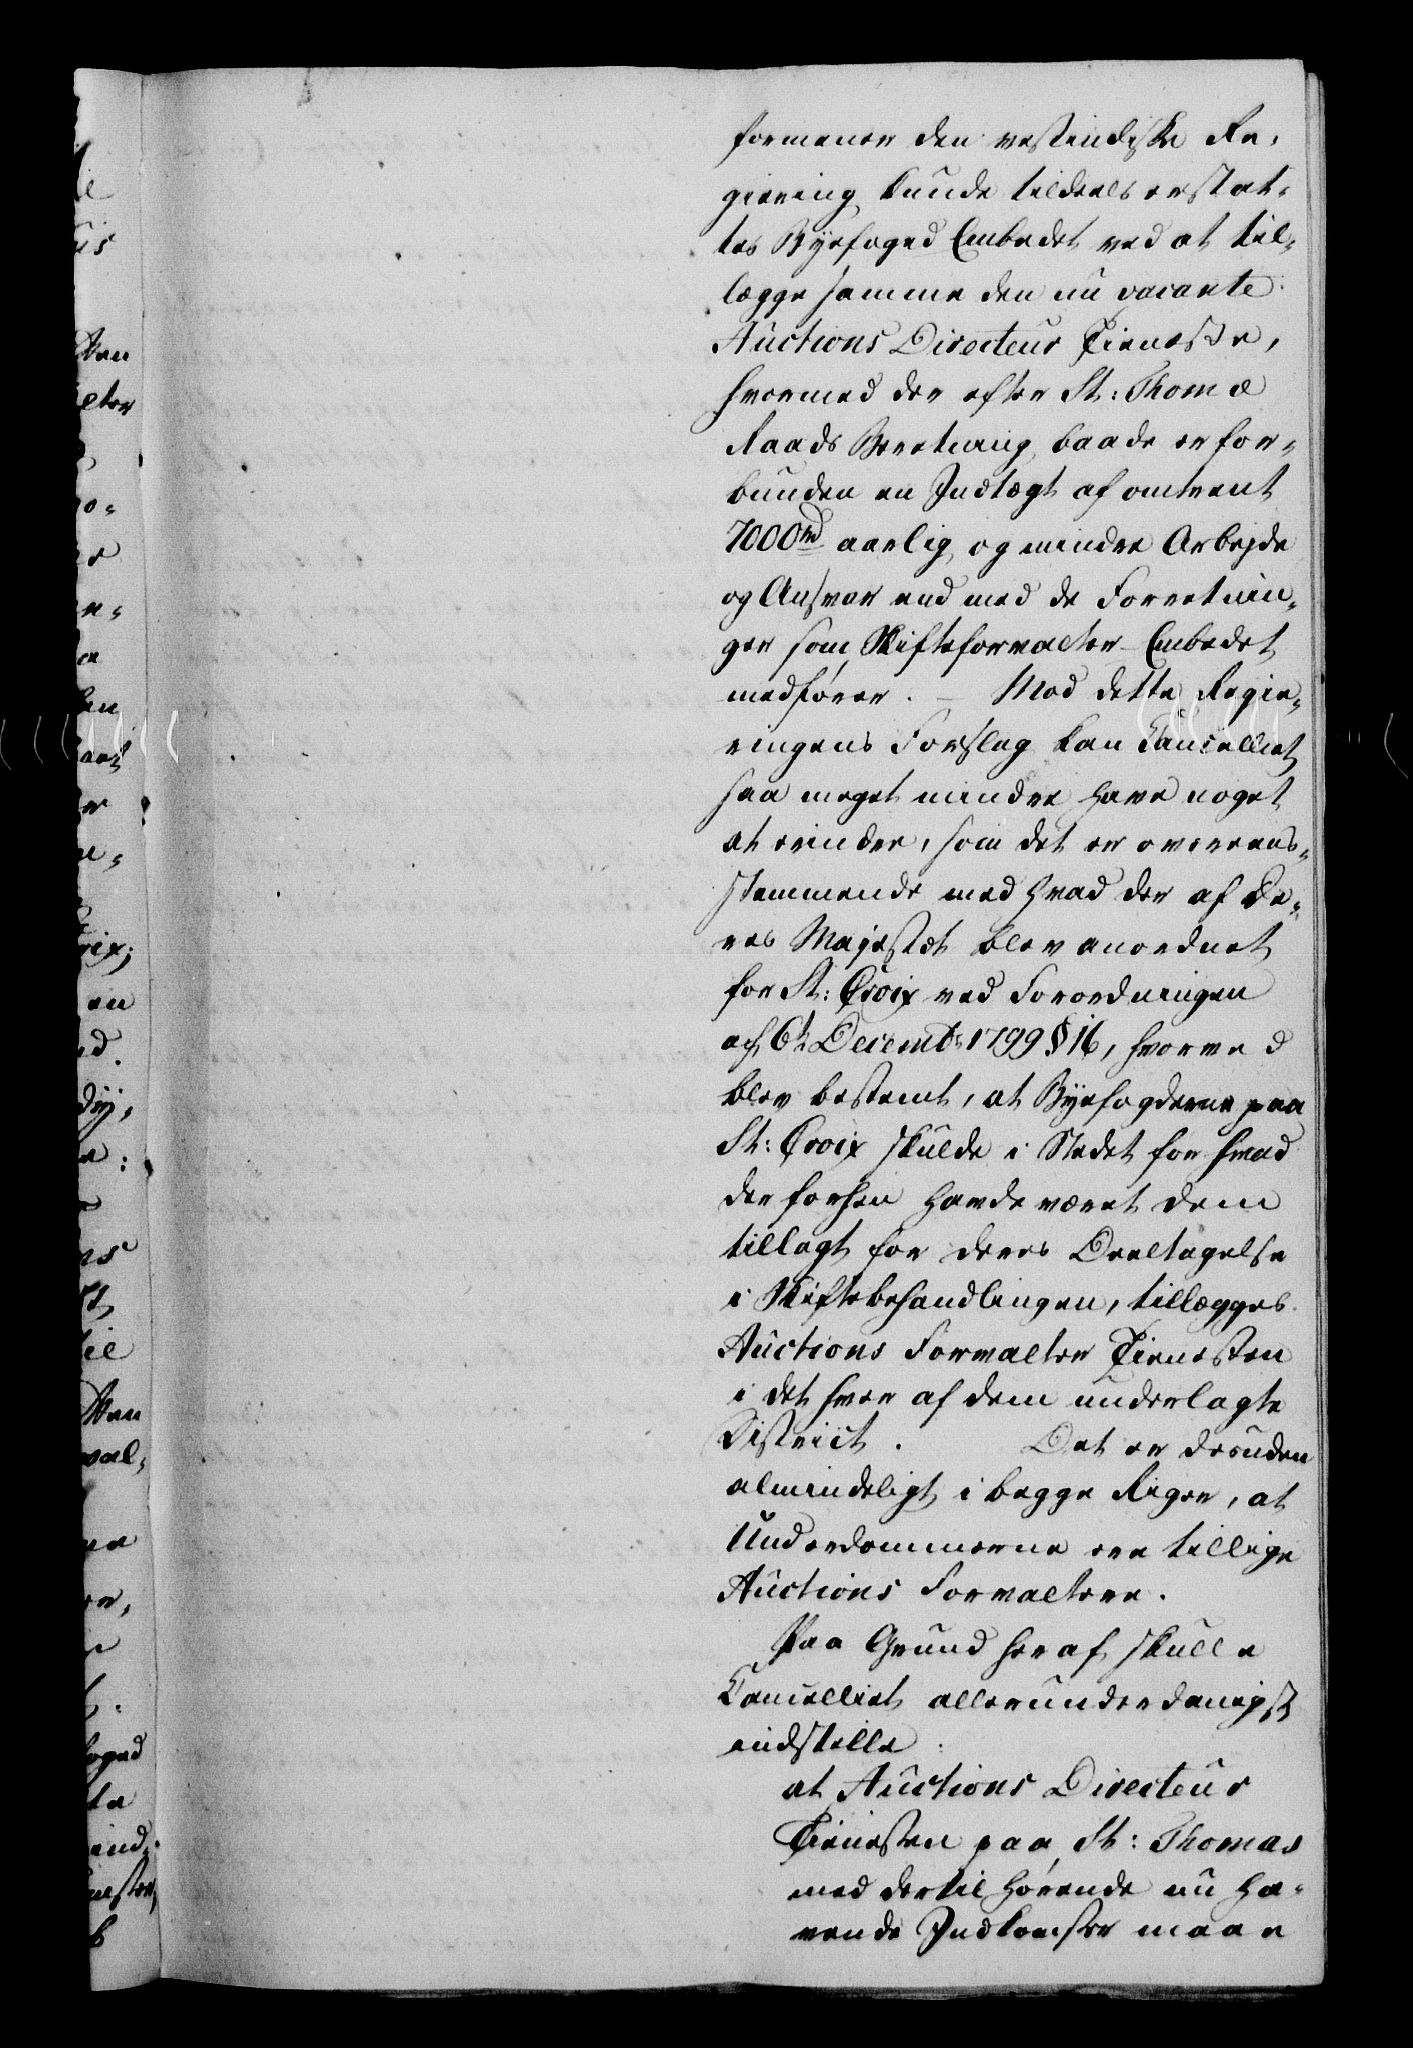 formener den vestindiske Re-
giering kunde tildeels erstat-
tes Byefoged Embedet ved at til-
lægge samme den nu vacante
Auctions Directeur Tieneste,
hvormed der efter St: Thomæ
Raads Beretning baade er for-
bunden en Indtægt af omtrent
7000 rd aarlig og mindre Arbejde
og Ansvar end med de Forretnin-
ger som Skifteforvalter-Embedet
medfører. – Mod dette Regie-
ringens Forslag kan Cancelliet
saa meget mindre have noget
at erindre, som det er overeens-
stemmende med hvad der af De-
res Majestæt blev anordnet
for St: Croix ved Forordningen
af 6te Decembr 1799 § 16, hvorved
blev bestemt, at Byefogderne paa
St: Croix skulde i Stedet for hvad
der forhen havde været dem
tillagt for deres Deeltagelse
i Skiftebehandlingen, tillægges
Auctions Forvalter Tienesten
i det hver af dem underlagte
District. Det er desuden
almindeligt i begge Riger, at
Underdommerne ere tillige
Auctions Forvaltere.
Paa Grund heraf skulle
Cancelliet allerunderdanigst
indstille
at Auctions Directeur
Tienesten paa St: Thomas
med dertil hørende nu ha-
vende Indkomster maae